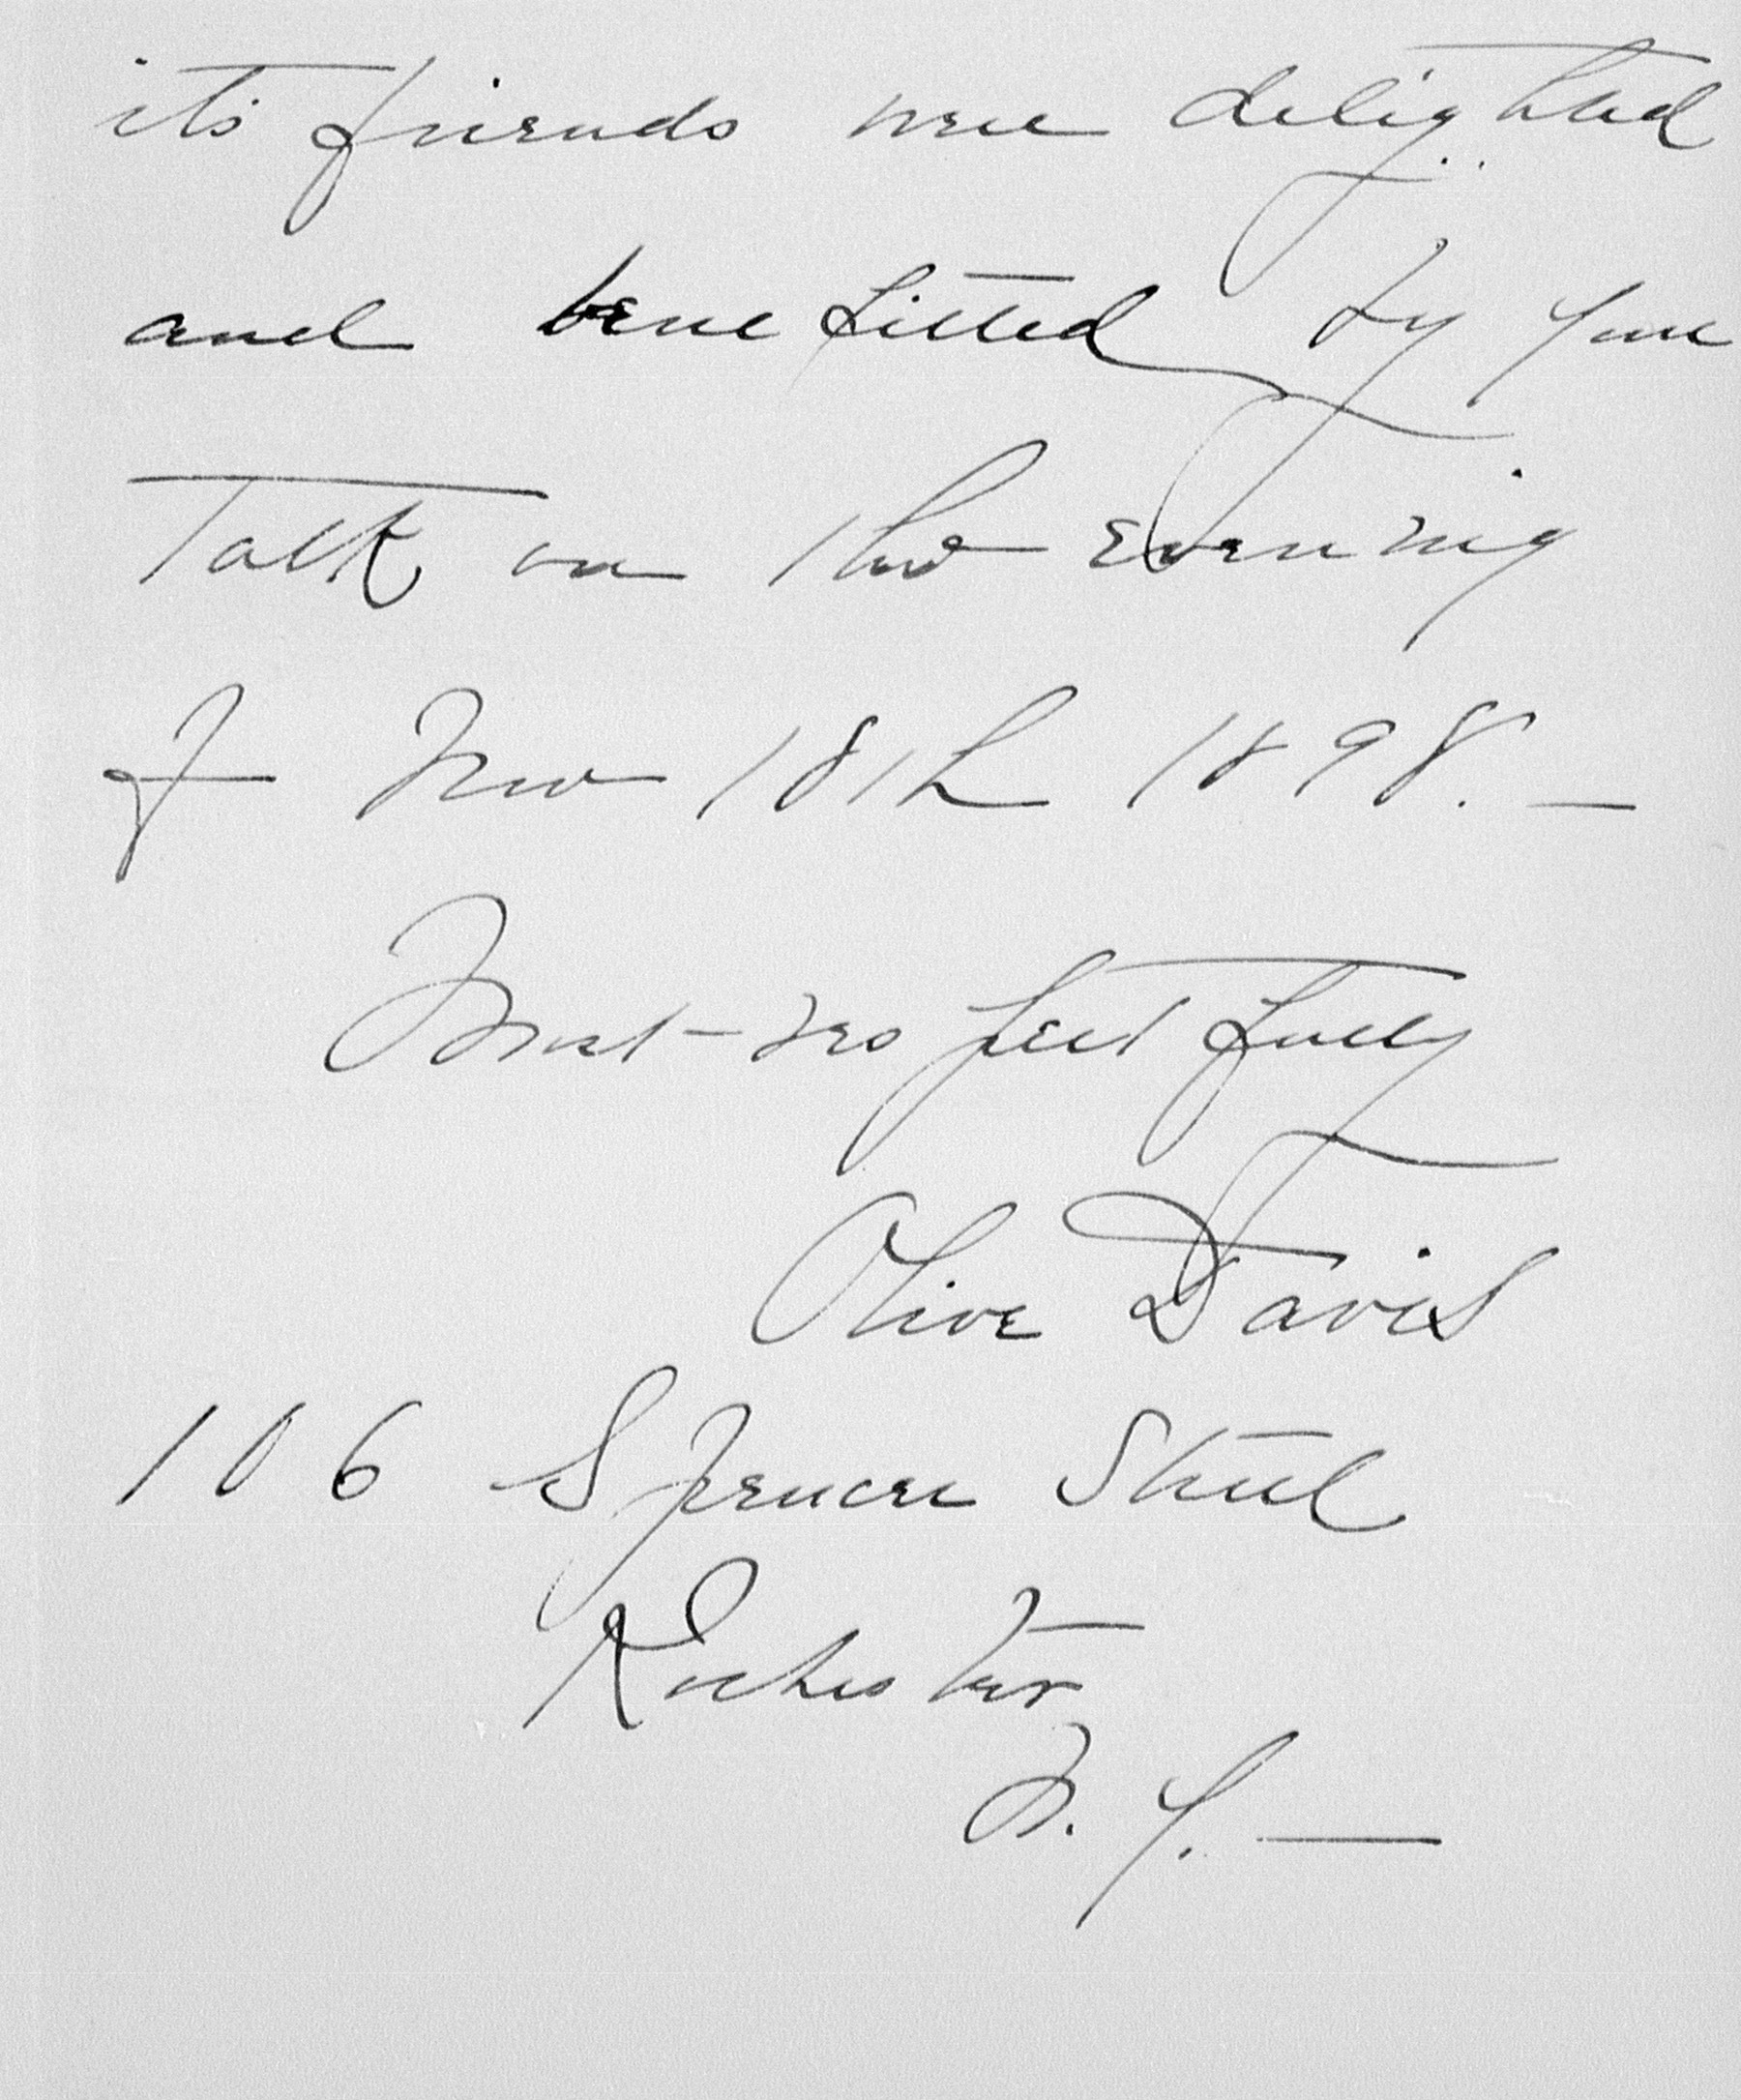 its friends were delighted
and benefitted by your
Talk on the evening
of Nov 18th 1898. —
Most respectfully
Olive Davis
106 Spencer Street
Rochester
N. Y. —